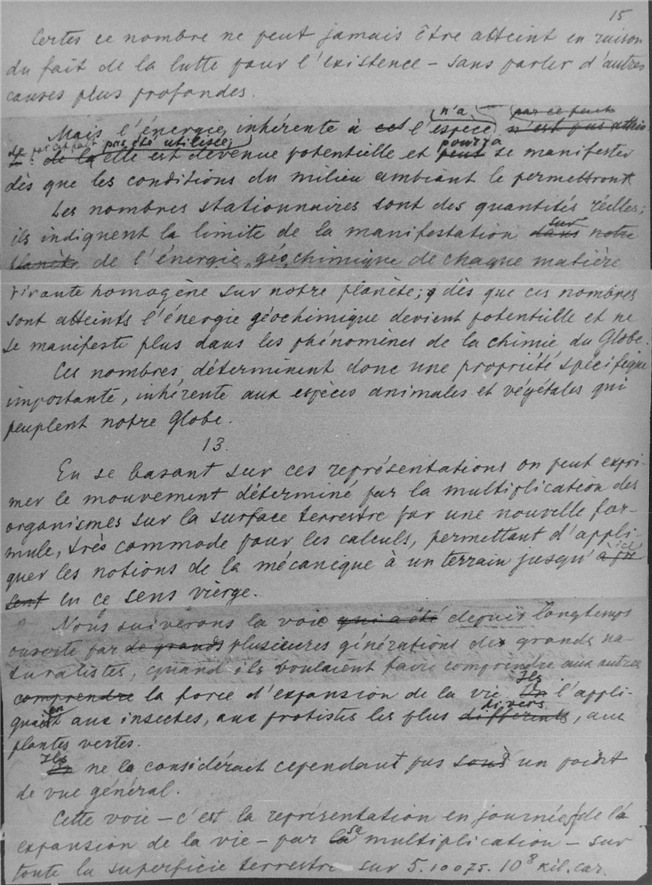 15
Certes ce nombre ne peut jamais être atteint en raison
du fait de la lutte pour l'existence – sans parler d'autres
causes plus profondes.
n'a par ce fait
Mais l'énergie, inhérente à ces l'espèce, n'est pas
pas été utilisée, pourra
de la elle est devenue potentielle et peut se manifester
dès que les conditions du milieu ambiant le permettront
Les nombres stationnaires sont des quantités réelles;
sur
ils indiquent la limite de la manifestation dans notre
planète de l'énergie géochimique de chaque matière
vivante homogène sur notre planète; dès que ces nombres
sont atteints l'énergie géochimique devient potentielle et ne
se manifeste plus dans les phénomènes de la chimie du Globe.
Ces nombres déterminent donc une propriété spécifique
importante, inhérente aux espèces animales et végétales qui
peuplent notre Globe.
13.
En se basant sur ces représentations on peut expri-
mer le mouvement déterminé par la multiplication des
organismes sur la surface terrestre par une nouvelle for-
mule, très commode pour les calculs, permettant d'appli-
ici
quer les notions de la mécanique à un terrain jusqu'à
sent en ce sens vierge.
Nous suiverons la voie qui a été depuis longtemps
ouverte par de grands plusieures générations de grands na-
turalistes, quand ils voulaient faire comprendre aux autres
Ils
comprendre la force d'expansion de la vie. On l'appli-
en divers
quait aux insectes, aux protistes les plus différents, aux
plantes vertes.
Ils
On ne la considérait cependant pas sous un point
de vue général.
Cette voie – c'est la représentation en journées de la
sa
expansion de la vie – par la multiplication – sur
toute la superficie terrestre sur 5.10075.10⁸ kil.car.